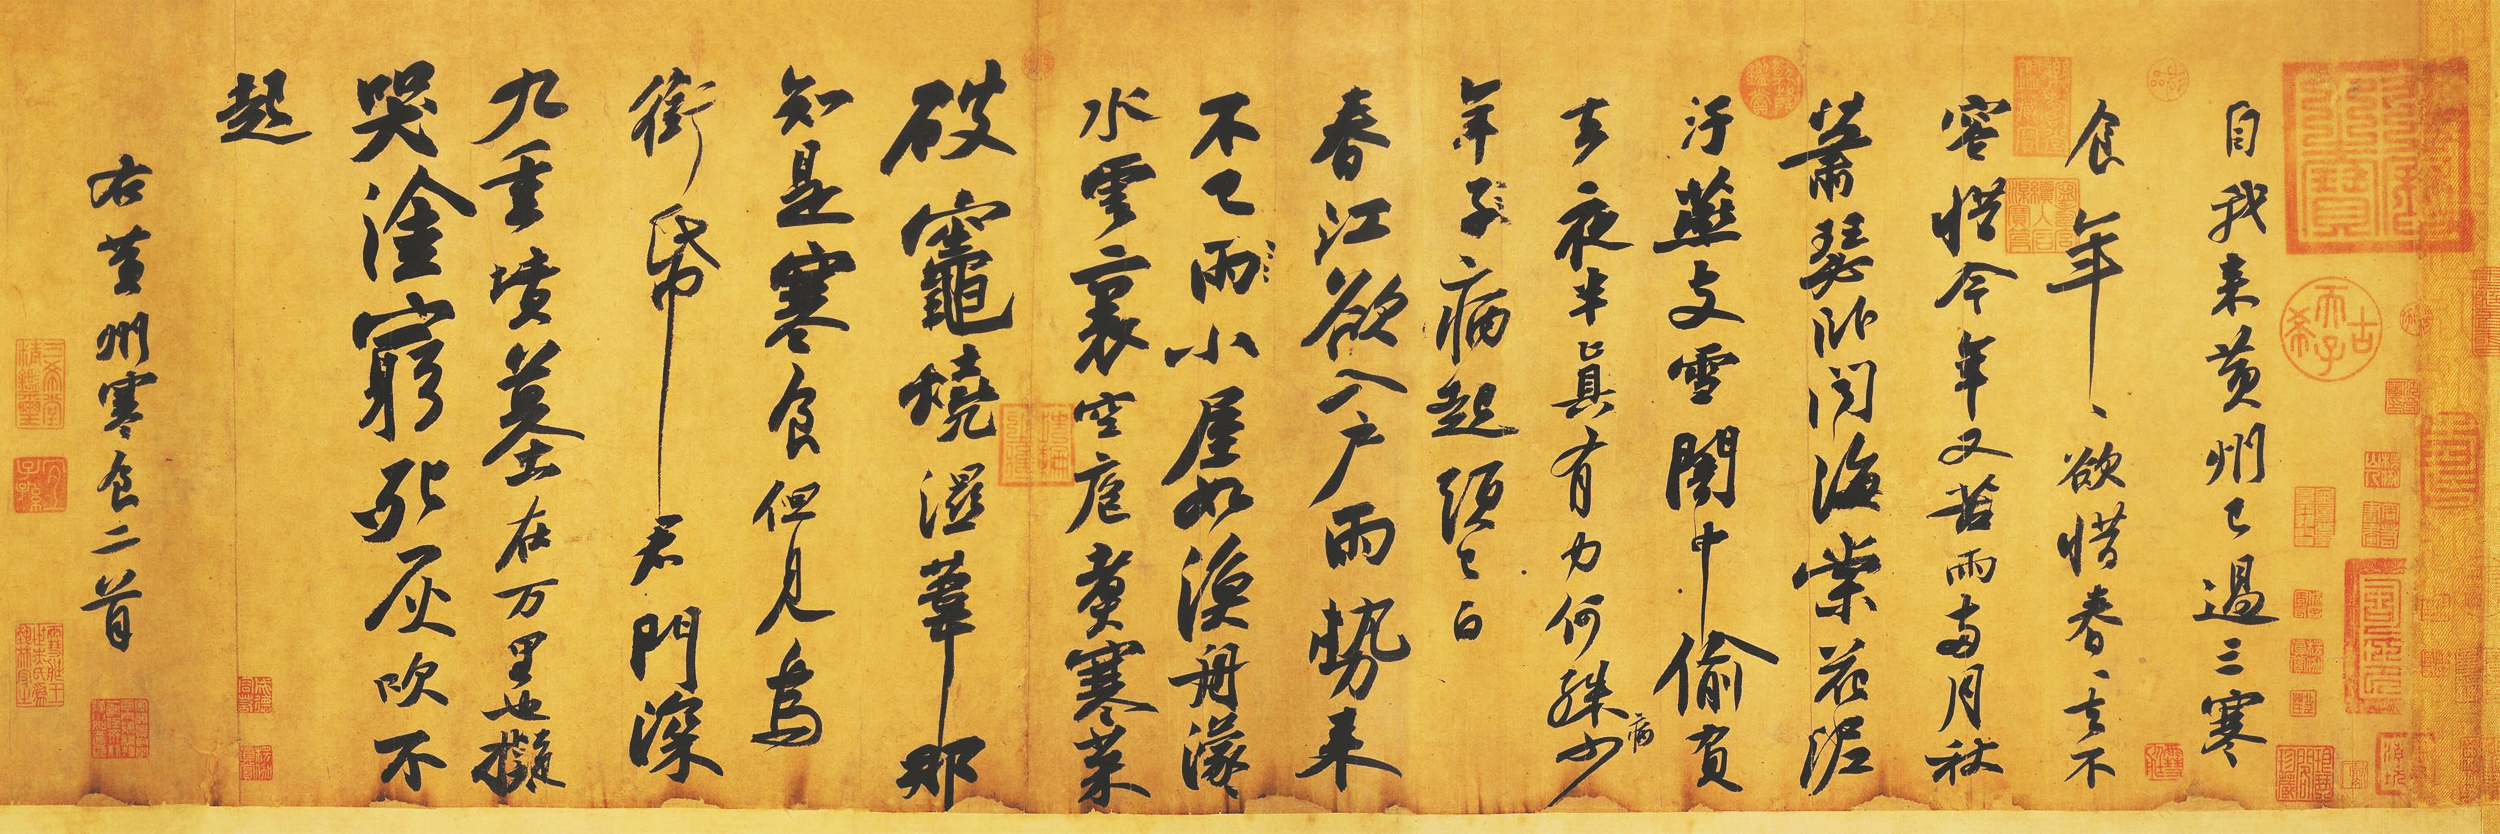 自我来黄州已過三寒
食年〻欲惜春〻去不
容惜今年又苦雨兩月秋
蕭瑟卧聞海棠花泥
汙燕支雪闇中偷負
去夜半真有力何殊病少
年子病起須已白
春江欲入户雨勢来
不已雨小屋如漁舟濛
水雲裏空庖煑寒菜
破竈燒濕葦那
知是寒食但見烏
銜帋君門深
九重墳墓在万里也擬
哭塗窮死灰吹不
起
右黄州寒食二首
古希天子